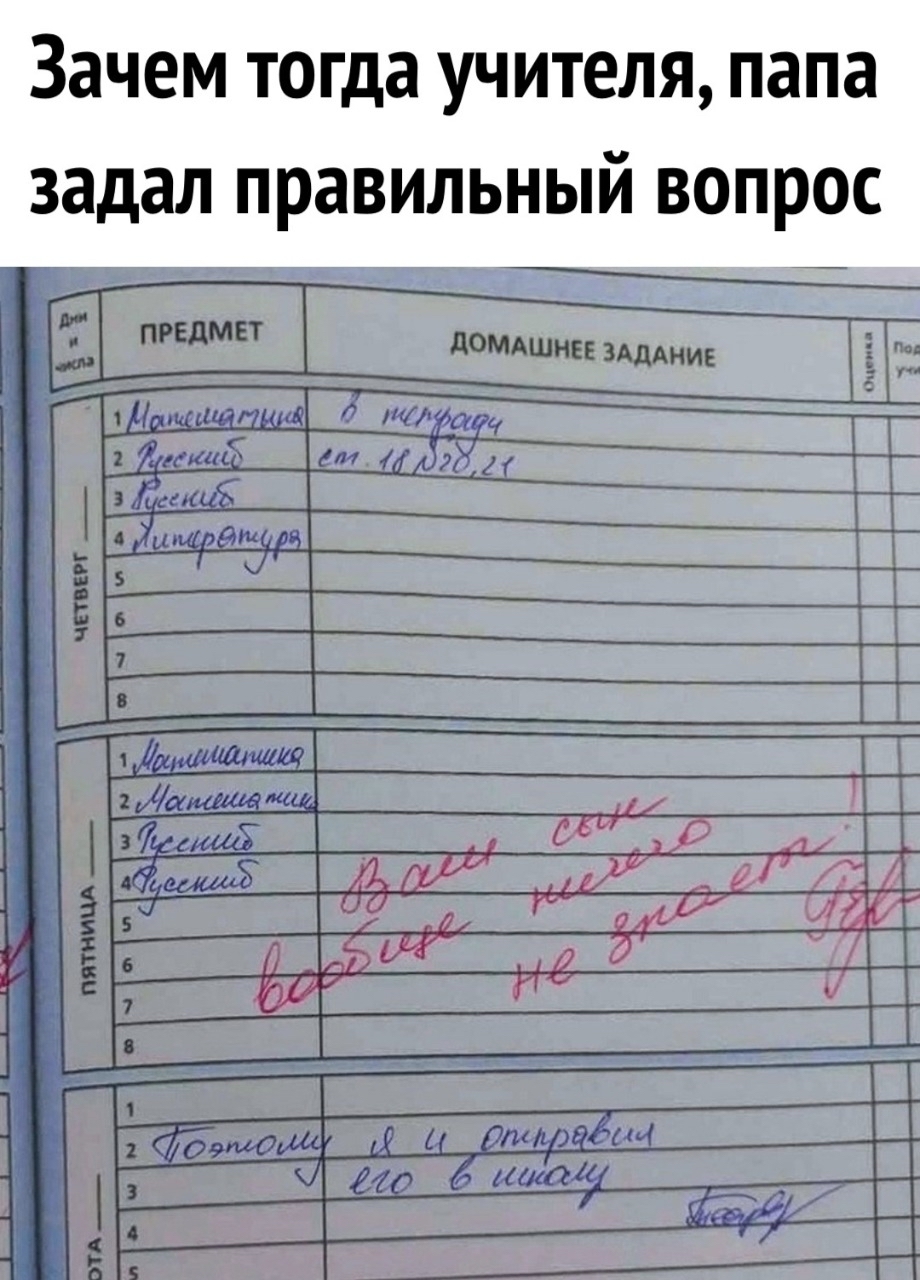 Зачем тогда учителя, папа
задал правильный вопрос
Дни и числа ПРЕДМЕТ ДОМАШНЕЕ ЗАДАНИЕ Оценка
ЧЕТВЕРГ
1 Математика в тетради
2 Русский ст. 18 №20,21
3 Русский
4 Литература
5
6
7
8
ПЯТНИЦА
1 Математика
2 Математик
3 Русский
4 Русский
5
6
7
8
Ваш сын
вообще ничего
не знает!
1
2 Поэтому я и отправил
3 его в школу
4
5